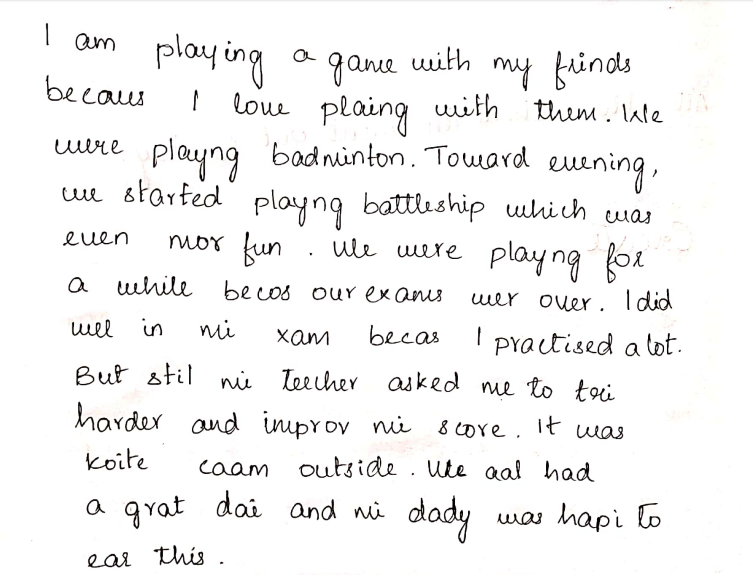 I am playing a game with my frinds
becaus I love plaing with them. We
were playng badminton. Toward evening,
we started playng battleship which was
even mor fun . We were playng for
a while becos our exams wer over. I did
well in mi xam becas I practised a lot.
But stil mi Teecher asked me to tri
harder and improv mi score. It was
koite caam outside. We aal had
a grat dai and mi dady was hapi to
ear this .